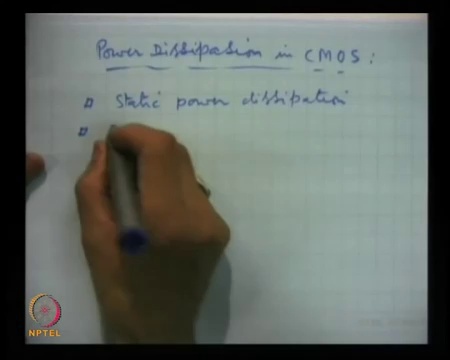 Power Dissipation in CMOS :
Static power dissipation
NPTEL